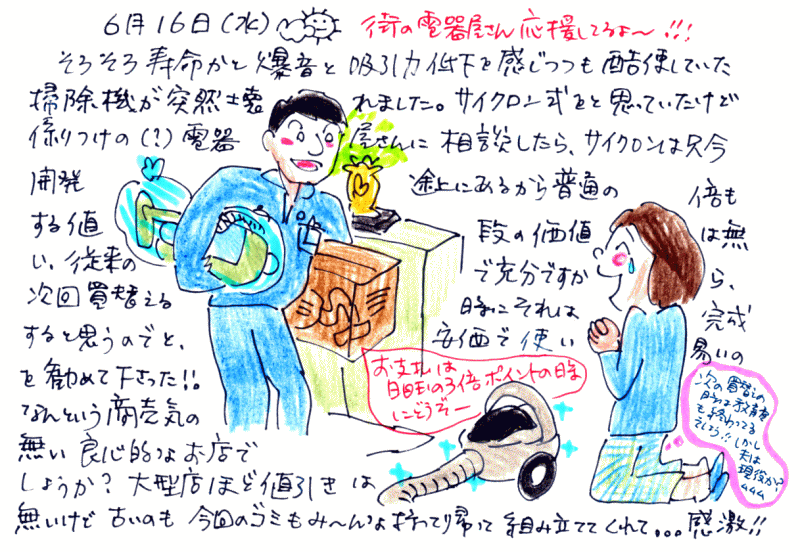 6月16日(水)
街の電器屋さん応援してるよ〜!!!
そろそろ寿命かと爆音と吸引力低下を感じつつも酷使していた
掃除機が突然土壊れました。サイクロン式をと思っていたけど
係りつけの(?)電器屋さんに相談したら、サイクロンは只今
開発途上にあるから普通の倍も
する値段の価値は無
い、従来ので充分ですから、
次回買替える時にそれは完成
すると思うのでと、安価で使い易いの
を勧めて下さった!!
なんという商売気の
無い良心的なお店で
しょうか?大型店ほど値引きは
無いけど古いのも今回のゴミもみ〜んな持ってり帰って組み立ててくれて...感激!!
お支払は
日曜の3倍ポイントの時
にどうぞー
次の買替えの
時は教育費
も終わってる
でしょう!!しかし
夫は
現役か?